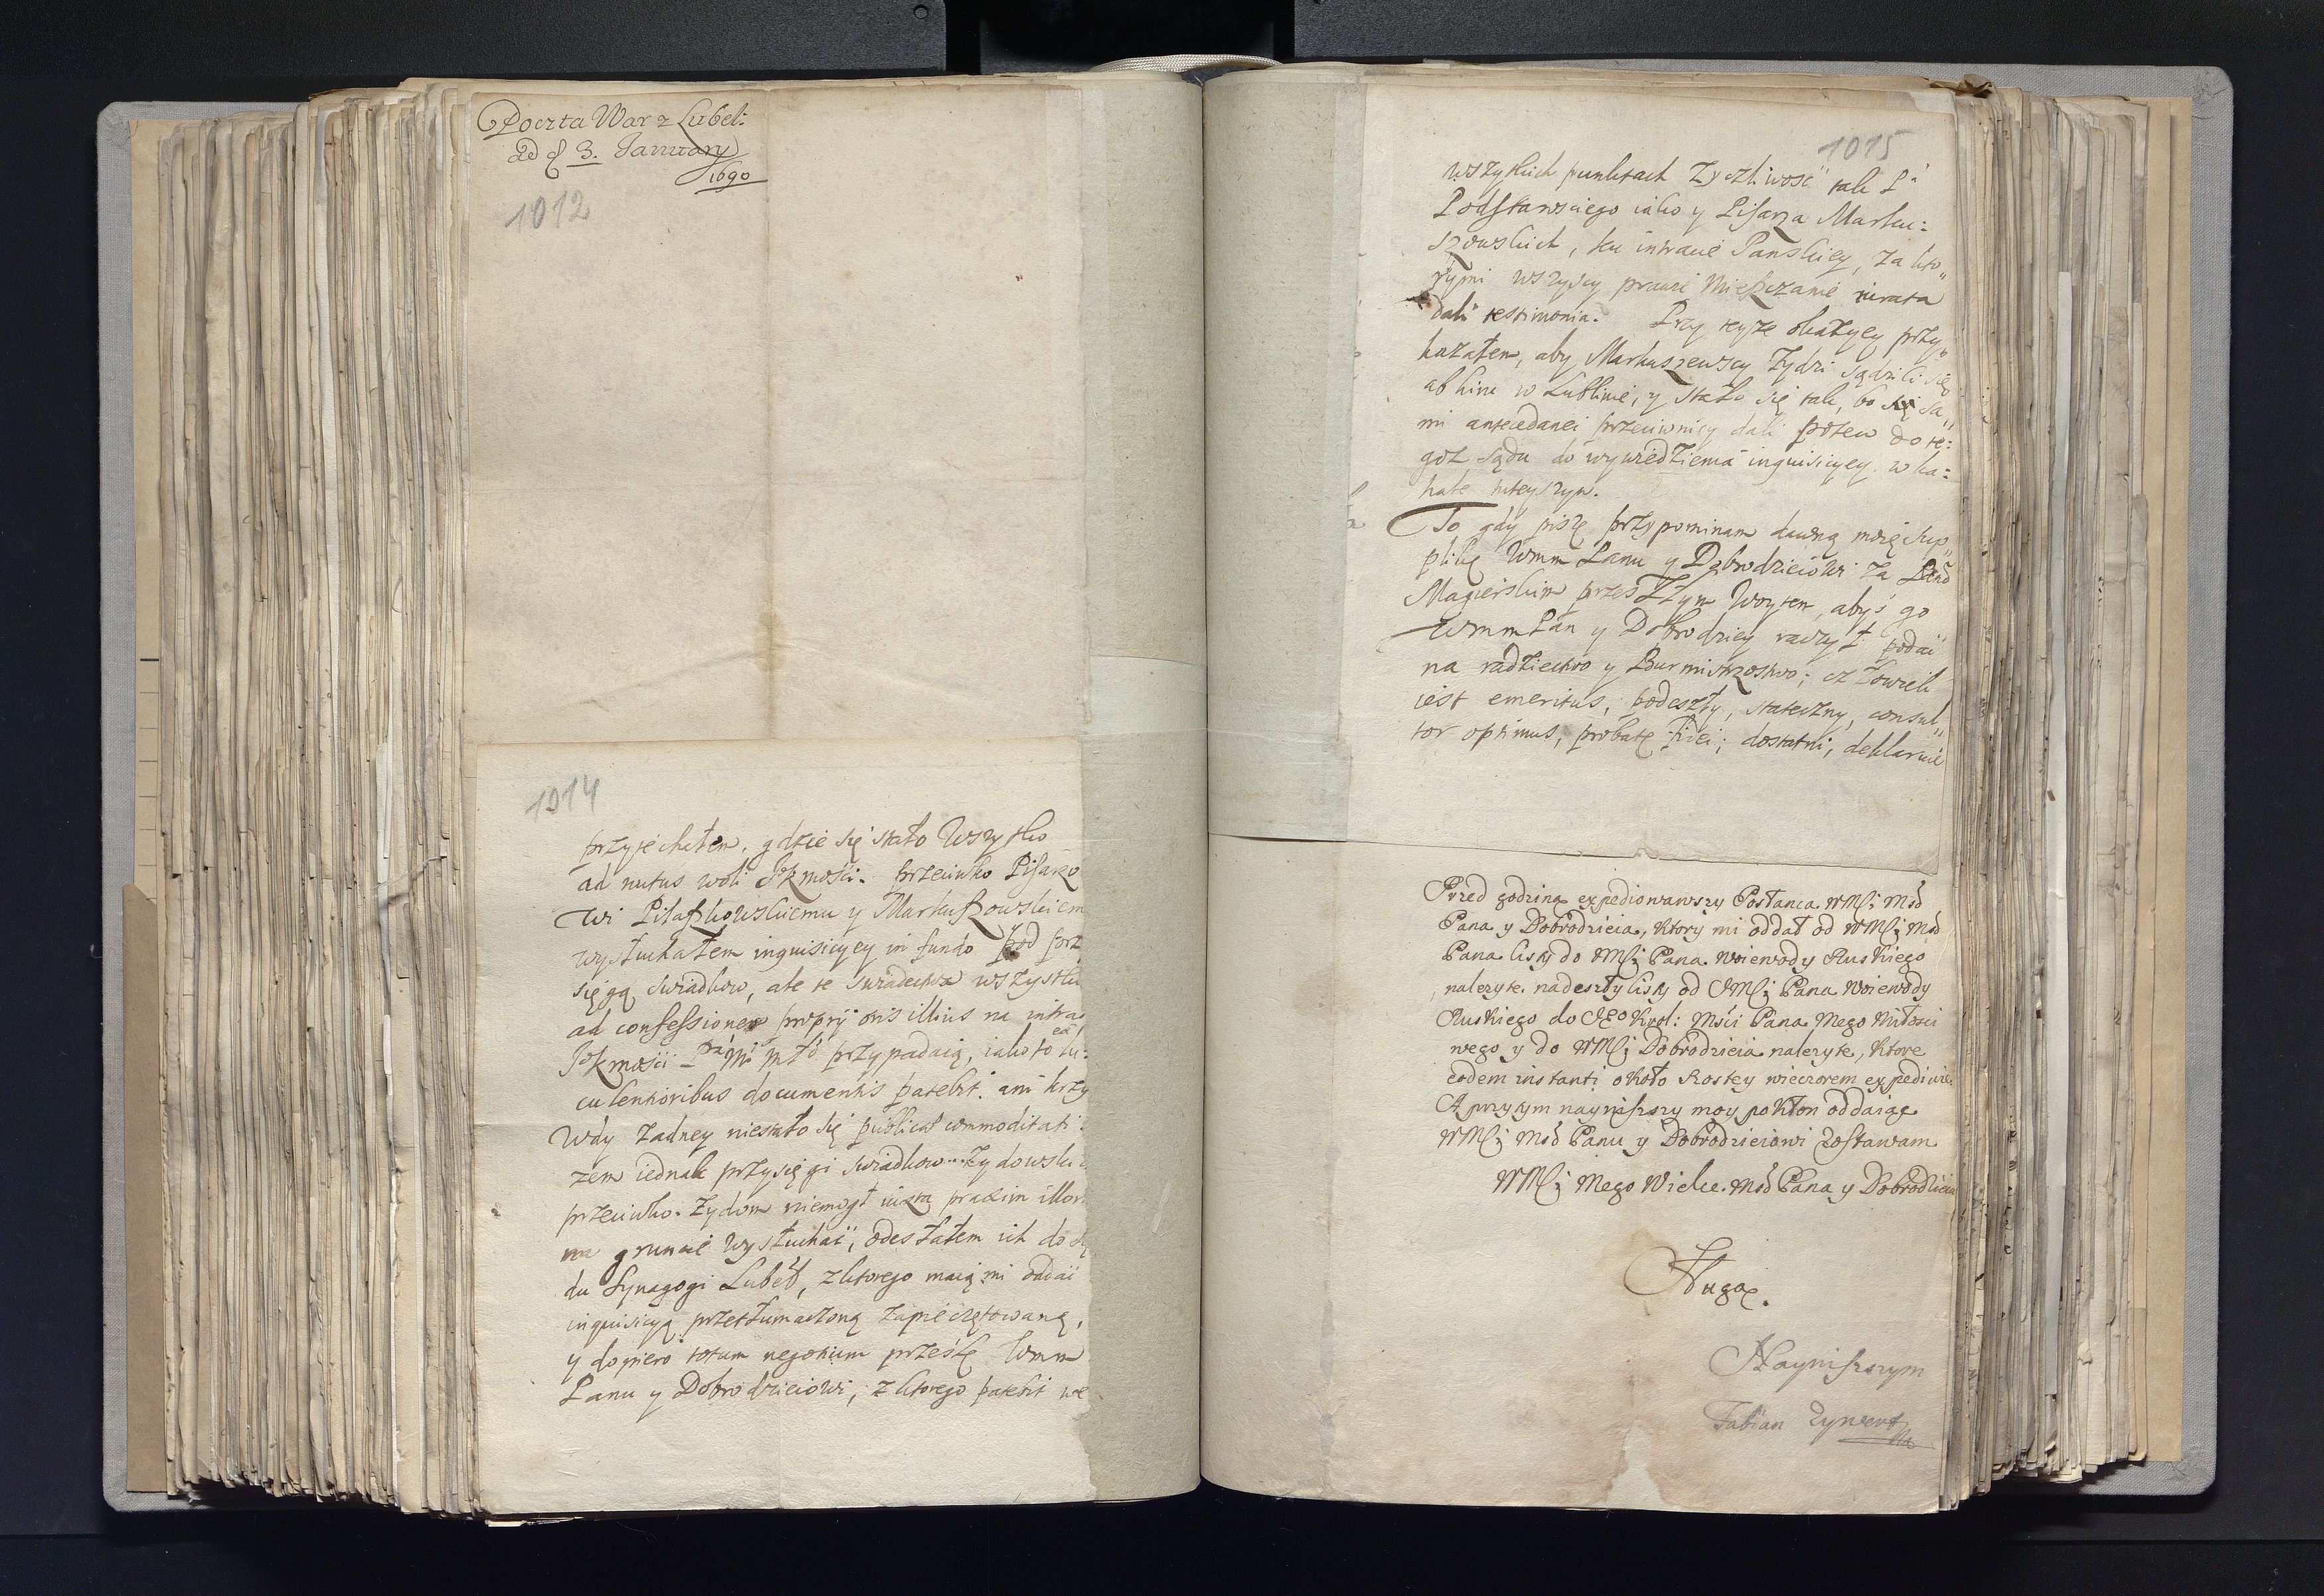 Poczta War z Lubel:
de 3. January
1690
1012
1014
przyjechałem, gdzie się stało wszytko
ad nutus woli Jᵒkmości. przeciwko Pisarzo
wi Pilaszkowskiemu y Markuszowskiem
wysłuchałem inquisicyey in fundo pod prz
sięgą swiadkow, ale te swiadectwa wszystkie
ad confessionem proprij oris illius na intra
Jᵒkmości przypadaią, iako to lu:
culentioribus documentis patebit. ani krzy
wdy żadney niestało się publicae commoditati.
żem iednak przysięgi swiadkow Żydowski
przeciwko Żydom niemogł iuxta praxim illor
na gruncie wysłuchać, odesłałem ich do są
du Synagogi Lubel, z ktorego maią mi oddać
inquisicyą przetłumaczoną zapieczętowaną,
y dopiero totum negotium prześlę Wmm
Panu y Dobrodzieiowi, z ktorego patebit we
1015
wszytkich punktach życzliwość tak P
Podstarosciego iako y Pisarza Marku:
szowskich, ku intracie Panskiey, za kto
rymi wszyscy prawie Mieszczanie iurata
dali testimonia. Przy teyże okazyey przy
kazałem, aby Markuszewscy Żydzi sądzili się
ab hinc w Lublinie, y stało się tak, bo sa
mi antecedanei przeciwnicy dali pozew do te:
goż sądu do wywiedzienia inquisicyey w ka:
hale tuteyszym.
To gdy piszę przypominam dawną moię sup
plikę Wmm Panu y Dobrodzieiowi za Panem
Magierskim przeszłym Woytem, abyś go
Wmm Pan y Dobrodziey raczył podać
na radziectwo y Burmistrzostwo; człowiek
iest emeritus, podeszły, stateczny, consul
tor optimus, probatae fidei; dostatni, deklaruie
Przed godziną expediowawszy Posłanca WMſi Msd
Pana y Dobrodzieia, ktory mi oddał od WMſi Msd
Pana listy do JMſi Pana Woiewody Ruskiego
należyte, nadeszły listy od JMſi Pana Woiewody
Ruskiego do Jᵍᵒ Krol: Mści Pana Mego Miłości
wego y do WMſi Dobrodzieia należyte, ktore
eodem instanti około szostey wieczorem expediuię.
A przytym nayniższy moy pokłon oddaiąc
WMſi Msd Panu y Dobrodzieiowi zostawam
WMſi Mego Wielce Msd Pana y Dobrodzieia
Sługą.
Nayniszszym
Fabian